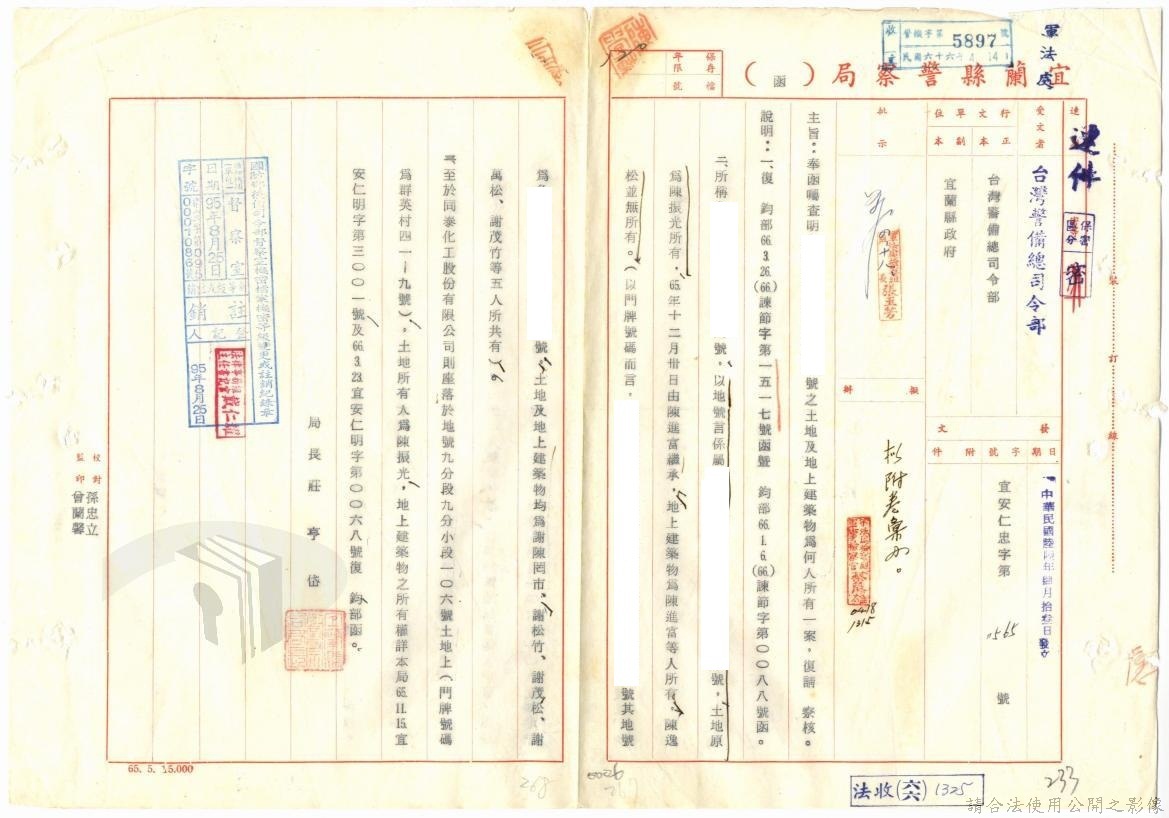 軍法處
收文
警備字第5897號
民國六十六年4月14日
宜蘭縣警察局（函）
保存年限
檔號
速別
速件
保密區分
密
受文者
台灣警備總司令部
行文單位
正本
台灣警備總司令部
副本
宜蘭縣政府
批示
擬辦
擬附卷彙辦。
0418
1315
發文
日期
中華民國陸陸年肆月拾叁日發文
字號
宜安仁忠字第0565號
附件
裝訂線
主旨：奉函囑查明
號之土地及地上建築物為何人所有一案，復請 察核。
說明：一、復 鈞部66.3.26.(66)諫節字第一五一七號函暨 鈞部66.1.6.(66)諫節字第〇〇八八號函。
二、所稱
號。以地號言係屬
號，土地原
為陳振光所有，65年十二月卅日由陳進富繼承，地上建築物為陳進富等人所有。陳逸
松並無所有。（以門牌號碼而言，
號其地號
為
號，土地及地上建築物均為謝陳罔市、謝松竹、謝茂松、謝
萬松、謝茂竹等五人所共有）。
三、至於同泰化工股份有限公司則座落於地號九分段九分小段一〇六號土地上（門牌號碼
為群英村四一–九號），土地所有人為陳振光，地上建築物之所有權詳本局65.11.15.宜
安仁明字第三〇〇一號及66.3.23.宜安仁明字第〇〇六八號復 鈞部函。
局長莊亨岱
督察室
日期
95年8月25日
字號
註銷
登記人
95年8月25日
校對
孫忠立
監印
曾蘭馨
65. 5. 15.000
268
0026
267
法收(六六)1325
233
請合法使用公開之影像